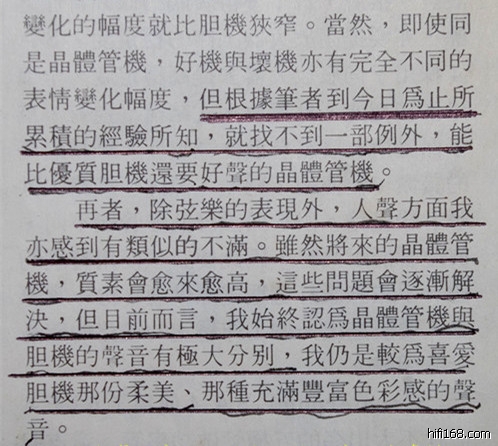 變化的幅度就比胆機狹窄。當然，即使同
是晶體管機，好機與壞機亦有完全不同的
表情變化幅度，但根據筆者到今日爲止所
累積的經驗所知，就找不到一部例外，能
比優質胆機還要好聲的晶體管機。
再者，除弦樂的表現外，人聲方面我
亦感到有類似的不滿。雖然將來的晶體管
機，質素會愈來愈高，這些問題會逐漸解
決，但目前而言，我始終認爲晶體管機與
胆機的聲音有極大分别，我仍是較爲喜愛
胆機那份柔美、那種充滿豐富色彩感的聲
音。
hifi168.com